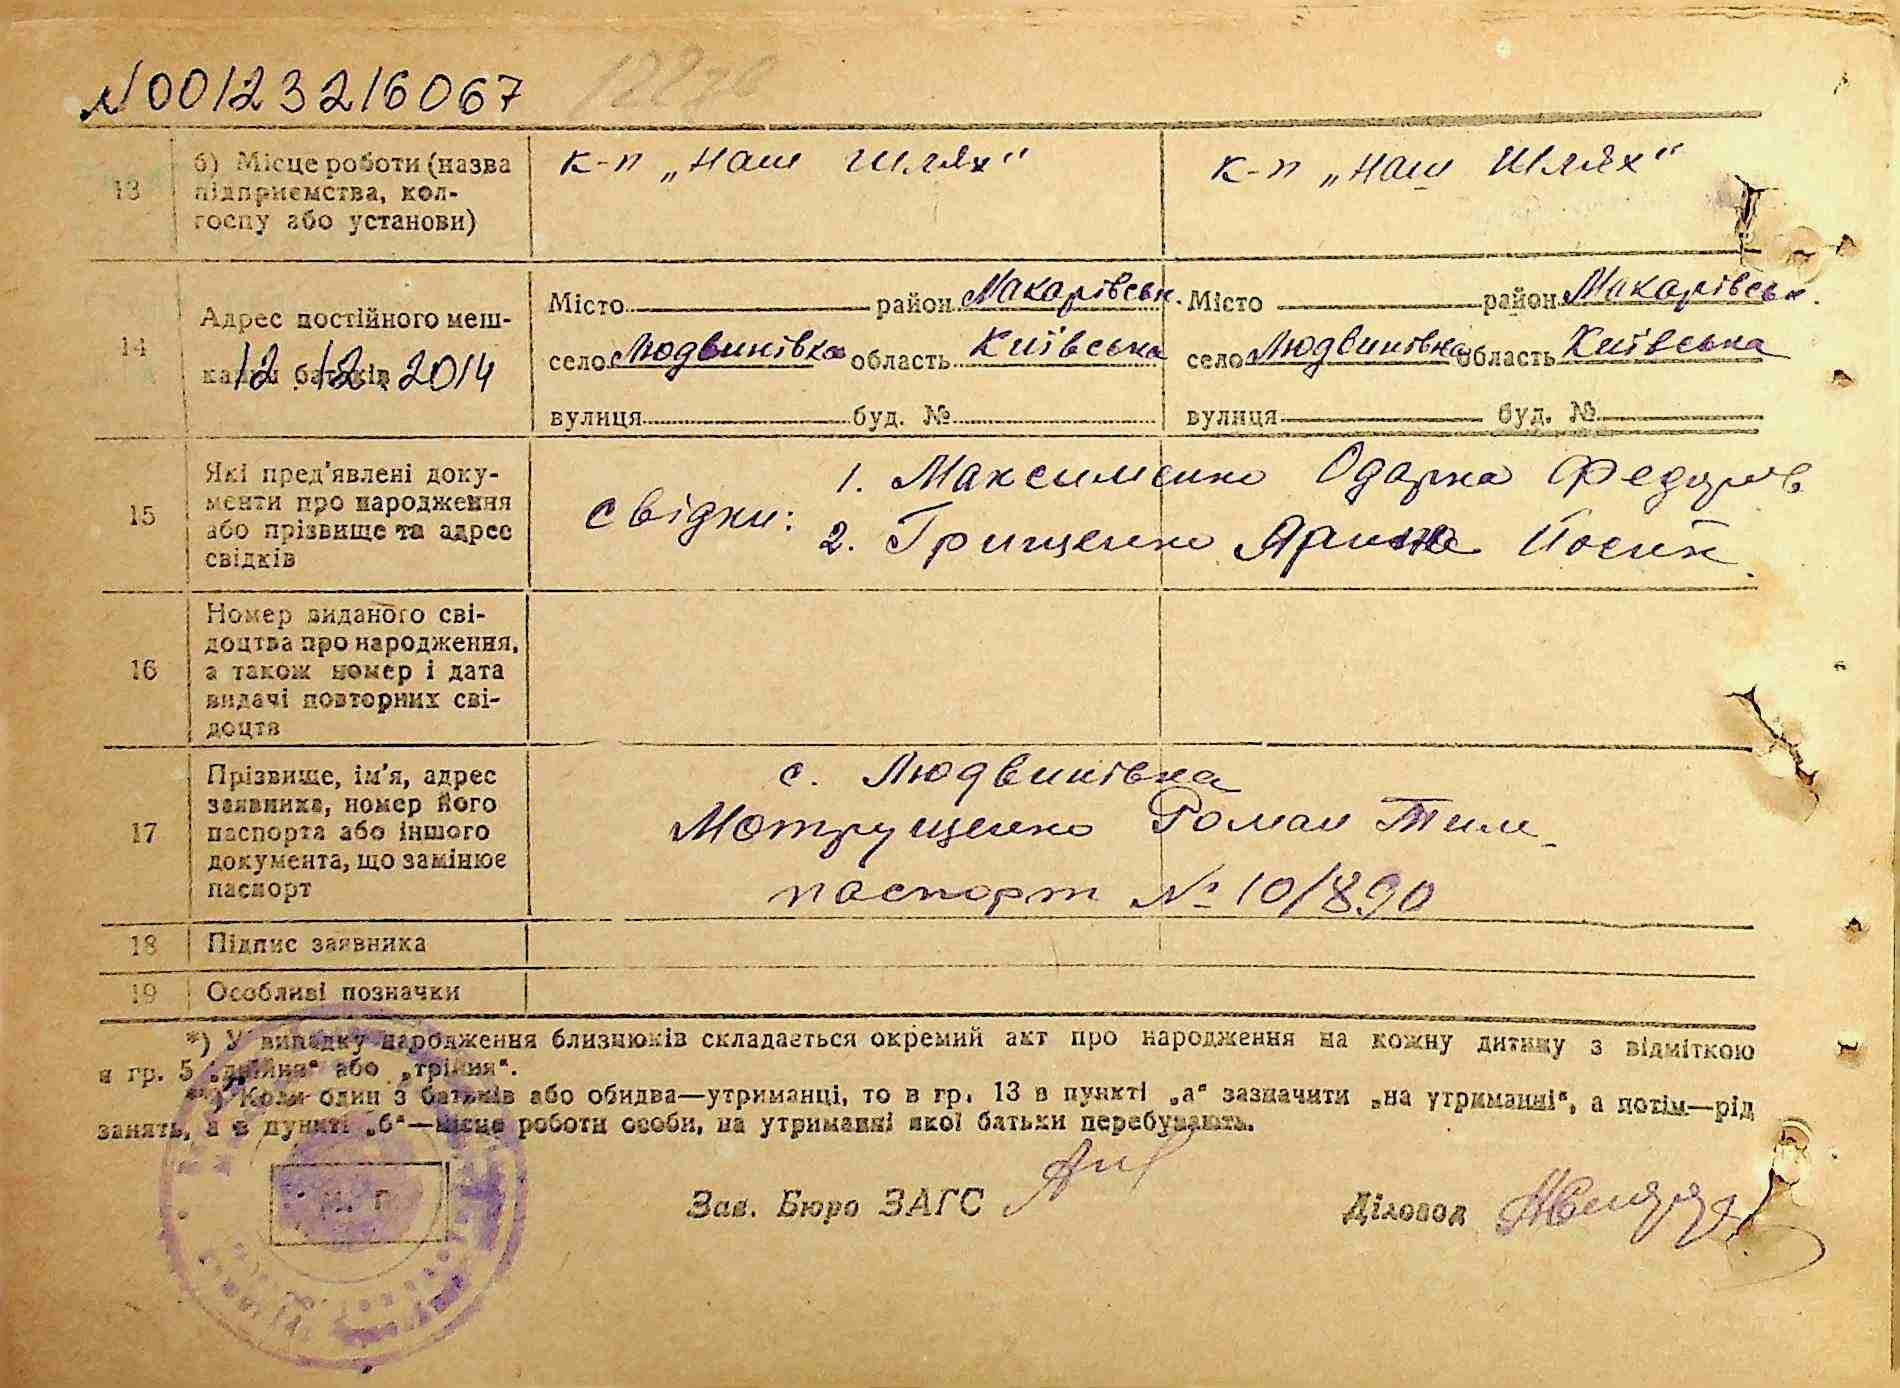 №00123216067
13
б) Місце роботи (назва підприємства, кол-
госпу або установи)
к-п „Наш Шлях“
к-п „Наш Шлях“
14
Адрес постійного меш-
канн батьків
12 12 2014
Місто район Макарівськ.
село Людвинівка область Київська
вулиця буд. №
Місто район Макарівськ.
село Людвинівка область Київська
вулиця буд. №
15
Які пред'явлені доку-
менти про народження
або прізвище та адрес
свідків
свідки:
1. Максименко Одарка Федоров
2. Грищенко Ярина Йосип.
16
Номер виданого сві-
доцтва про народження,
а також номер і дата
видачі повторних сві-
доцтв
17
Прізвище, ім'я, адрес
заявника, номер його
паспорта або іншого
документа, що замінює
паспорт
с. Людвинівка
Мотрущенко Роман Тим.
паспорт № 10/890
18
Підпис заявника
19
Особливі позначки
*) У випадку народження близнюків складається окремий акт про народження на кожну дитину з відміткою
в гр. 5 „двійня“ або „трійня“.
**) Коли один з батьків або обидва—утриманці, то в гр. 13 в пункті „а“ зазначити „на утриманні“, а потім—рід
занять, а в пункті „б“—місце роботи особи, на утриманні якої батьки перебувають.
М. П.
Зав. Бюро ЗАГС
Діловод